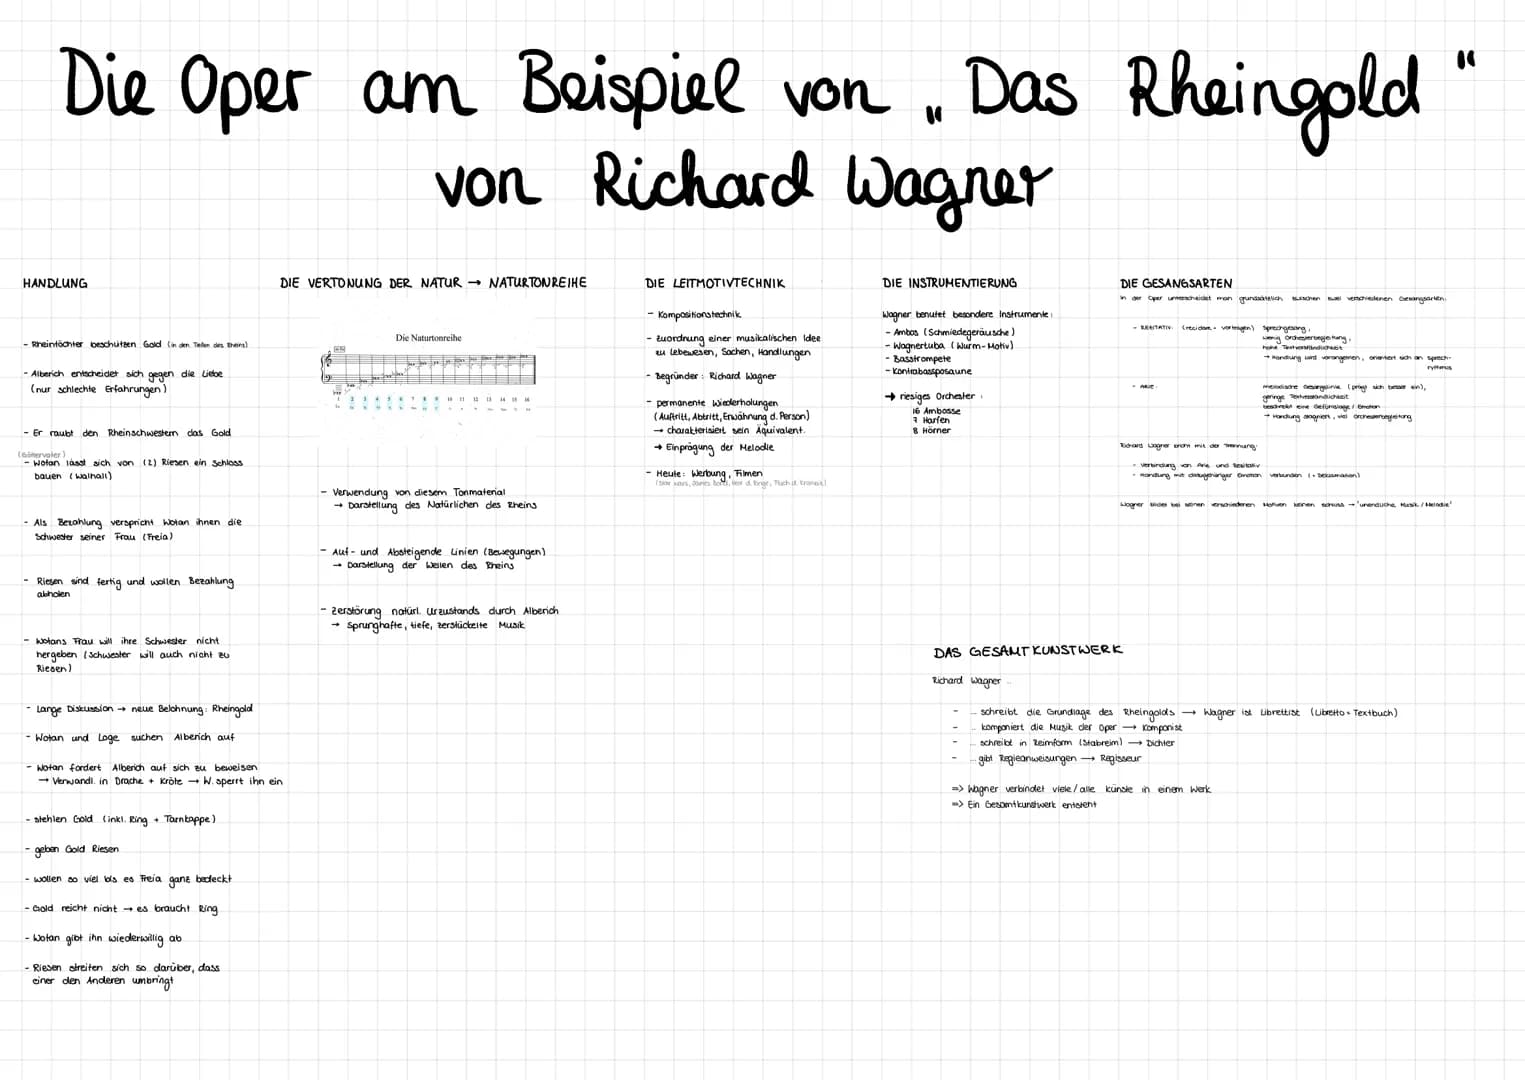 Die Oper am Beispiel von „Das Rheingold"
von Richard Wagner
HANDLUNG
- Rheintöchter beschützen Gold (in den Tiefen des Rheins)
- Alberich entscheidet sich gegen die Liebe
(nur schlechte Erfahrungen)
- Er raubt den Rheinschwestern das Gold
(Göttervater)
- Wotan lässt sich von (2) Riesen ein Schloss
bauen (Walhall)
- Als Bezahlung verspricht Wotan ihnen die
Schwester seiner Frau (Freia)
- Riesen sind fertig und wollen Bezahlung
abholen
- Wotans Frau will ihre Schwester nicht
hergeben (Schwester will auch nicht zu
Riesen)
- Lange Diskussion → neue Belohnung: Rheingold
- Wotan und Loge suchen Alberich auf
- Wotan fordert Alberich auf sich zu beweisen
→ Verwandl. in Drache + Kröte → W. sperrt ihn ein
- stehlen Gold (inkl. Ring + Tarnkappe)
- geben Gold Riesen
- wollen so viel bis es Freia ganz bedeckt
- Gold reicht nicht → es braucht Ring
- Wotan gibt ihn wiederwillig ab
- Riesen streiten sich so darüber, dass
einer den Anderen umbringt
DIE VERTONUNG DER NATUR → NATURTONREIHE
Die Naturtonreihe
1 2 3 4 5 6 7 8 9 10 11 12 13 14 15 16
- Verwendung von diesem Tonmaterial
→ Darstellung des Natürlichen des Rheins
- Auf- und Absteigende Linien (Bewegungen)
→ Darstellung der Wellen des Rheins
- Zerstörung natürl. Urzustands durch Alberich
→ Sprunghafte, tiefe, zerstückelte Musik
DIE LEITMOTIVTECHNIK
- Kompositionstechnik
- Zuordnung einer musikalischen Idee
zu Lebewesen, Sachen, Handlungen
- Begründer: Richard Wagner
- permanente Wiederholungen
(Auftritt, Abtritt, Erwähnung d. Person)
→ charakterisiert sein Äquivalent
→ Einprägung der Melodie
- Heute: Werbung, Filmen
(Star Wars, James Bond, Herr d. Ringe, Fluch d. Karibik)
DIE INSTRUMENTIERUNG
Wagner benutzt besondere Instrumente:
- Ambos (Schmiedegeräusche)
- Wagnertuba (Wurm-Motiv)
- Basstrompete
- Kontrabassposaune
→ riesiges Orchester:
16 Ambosse
7 Harfen
8 Hörner
DIE GESANGSARTEN
In der Oper unterscheidet man grundsätzlich zwischen zwei verschiedenen Gesangsarten:
- REZITATIV: (recidare = vortragen) Sprechgesang,
wenig Orchesterbegleitung,
hohe Textverständlichkeit
→ Handlung wird vorangetrieben, orientiert sich an Sprech-
rythmus
- ARIE: melodische Gesangslinie (prägt sich besser ein),
geringe Textverständlichkeit
beschreibt eine Gefühlslage / Emotion
→ Handlung stagniert, viel Orchesterbegleitung
Richard Wagner bricht mit der Trennung:
- Verbindung von Arie und Rezitativ
- Handlung mit dazugehöriger Emotion verbunden (= Deklamation)
Wagner bildet bei seinen verschiedenen Motiven keinen Schluss → 'unendliche Musik / Melodie'
DAS GESAMTKUNSTWERK
Richard Wagner ...
- ... schreibt die Grundlage des Rheingolds → Wagner ist Librettist (Libretto = Textbuch)
- ... komponiert die Musik der Oper → Komponist
- ... schreibt in Reimform (Stabreim) → Dichter
- ... gibt Regieanweisungen → Regisseur
=> Wagner verbindet viele/alle Künste in einem Werk
=> Ein Gesamtkunstwerk entsteht